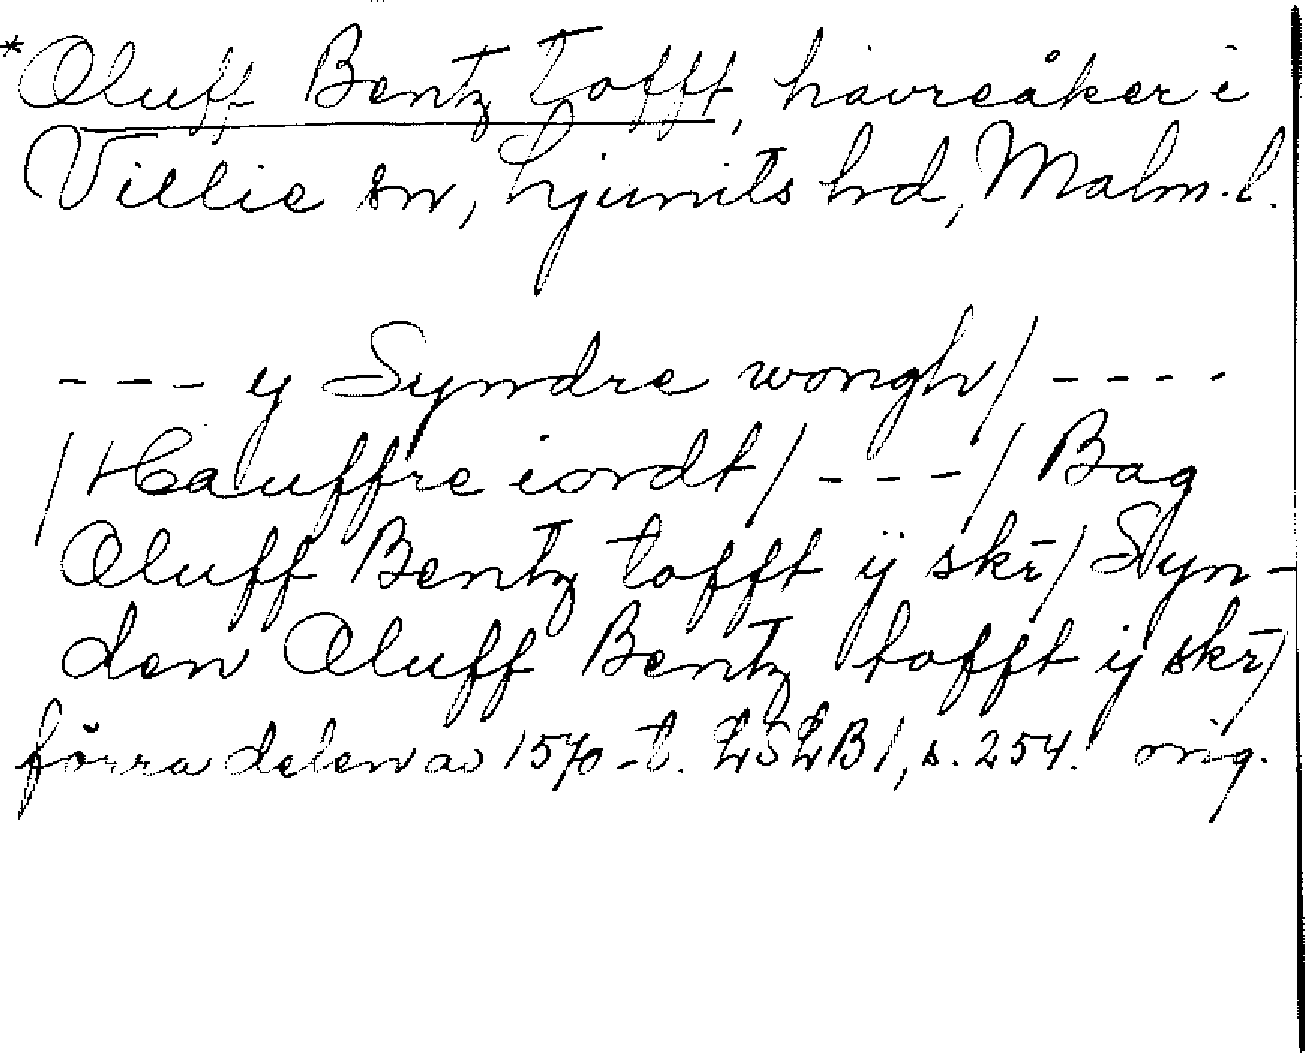 *Oluff Bentz tofft, havreåker i
Villie sn, Ljunits hd, Malm. l.
--- y Syndre wongh/ ----
/Hauffre iordt/ ---/ Bag
Oluff Bentz tofft ij skr̄/ Syn-
den Oluff Bentz tofft ij skr̄/
förra delen av 1570-t. LSLB 1, s. 254. orig.